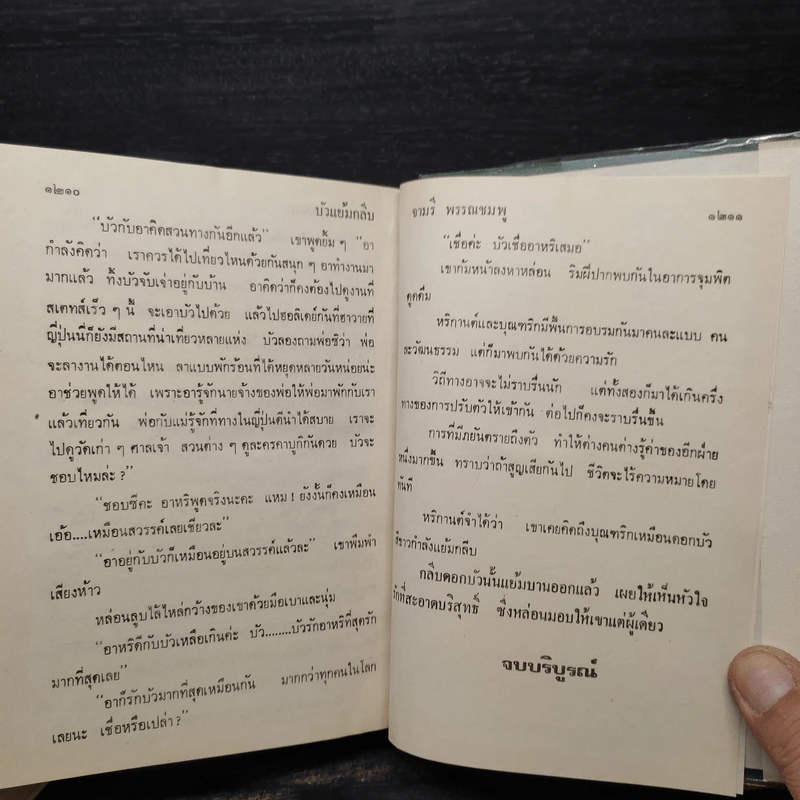 ๑๒๑๐
บัวแย้มกลีบ
“บัวกับอาคิดสวนทางกันอีกแล้ว” เขาพูดยิ้ม ๆ “อา
กำลังคิดว่า เราควรได้ไปเที่ยวไหนด้วยกันสนุก ๆ อาทำงานมา
มากแล้ว ทิ้งบัวจับเจ่าอยู่กับบ้าน อาคิดว่าก็คงต้องไปดูงานที่
สเตทส์เร็ว ๆ นี้ จะเอาบัวไปด้วย แล้วไปฮอลิเดย์กันที่ฮาวายที่
ญี่ปุ่นนี่ก็ยังมีสถานที่น่าเที่ยวหลายแห่ง บัวลองถามพ่อซิว่า พ่อ
จะลางานได้ตอนไหน ลาแบบพักร้อนที่ได้หยุดหลายวันหน่อยน่ะ
อาช่วยพูดให้ได้ เพราะอารู้จักนายจ้างของพ่อให้พ่อมาพักกับเรา
แล้วเที่ยวกัน พ่อกับแม่รู้จักที่ทางในญี่ปุ่นดีนำได้สบาย เราจะ
ไปดูวัดเก่า ๆ ศาลเจ้า สวนต่าง ๆ ดูละครคาบูกิกันด้วย บัวจะ
ชอบไหมล่ะ ?”
“ชอบซีคะ อาหริพูดจริงนะคะ แหม ! ยังงั้นก็คงเหมือน
เอ้อ....เหมือนสวรรค์เลยเชียวละ”
“อาอยู่กับบัวก็เหมือนอยู่บนสวรรค์แล้วละ” เขาพึมพำ
เสียงห้าว
หล่อนลูบไล้ไหล่กว้างของเขาด้วยมือเบาและนุ่ม
“อาหริดีกับบัวเหลือเกินค่ะ บัว........บัวรักอาหริที่สุดรัก
มากที่สุดเลย”
“อาก็รักบัวมากที่สุดเหมือนกัน มากกว่าทุกคนในโลก
เลยนะ เชื่อหรือเปล่า ?”
จามรี พรรณชมพู
๑๒๑๑
“เชื่อค่ะ บัวเชื่ออาหริเสมอ”
เขาก้มหน้าลงหาหล่อน ริมฝีปากพบกันในอาการจุมพิต
ดูดดื่ม
หริกานต์และบุณฑริกมีพื้นการอบรมกันมาคนละแบบ คน
ละวัฒนธรรม แต่ก็มาพบกันได้ด้วยความรัก
วิถีทางอาจจะไม่ราบรื่นนัก แต่ทั้งสองก็มาได้เกินครึ่ง
ทางของการปรับตัวให้เข้ากัน ต่อไปก็คงจะราบรื่นขึ้น
การที่มีภยันตรายถึงตัว ทำให้ต่างคนต่างรู้ค่าของอีกฝ่าย
หนึ่งมากขึ้น ทราบว่าถ้าสูญเสียกันไป ชีวิตจะไร้ความหมายโดย
ทันที
หริกานต์จำได้ว่า เขาเคยคิดถึงบุณฑริกเหมือนดอกบัว
สีขาวกำลังแย้มกลีบ
กลีบดอกบัวนั้นแย้มบานออกแล้ว เผยให้เห็นหัวใจ
รักที่สะอาดบริสุทธิ์ ซึ่งหล่อนมอบให้เขาแต่ผู้เดียว
จบบริบูรณ์